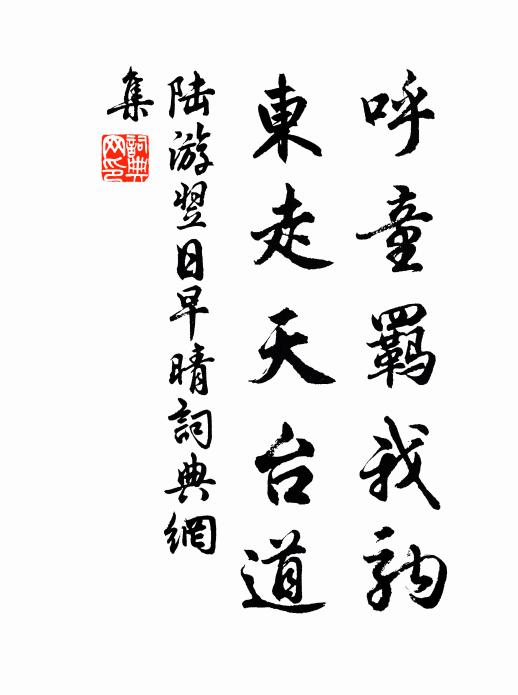 呼童羈我駒
東走天台道
陸游翌日早晴詞典網
集
詞典網印